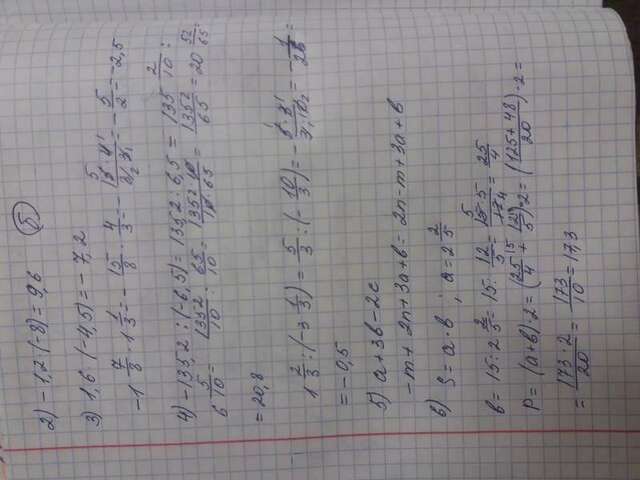 2) -1,2·(-8) = 9,6 (б)
3) 1,6·(-4,5) = -7,2
-1 7/8 · 1 1/3 = - 15/8 · 4/3 = - 15·4/8·3 = - 5/2 = -2,5
4) -135,2 : (-6,5) = 135,2 : 6,5 = 135 2/10 :
6 5/10 = 1352/10 : 65/10 = 1352·10/10·65 = 1352/65 = 20 52/65 =
= 20,8
1 2/3 : (-3 1/3) = 5/3 : (- 10/3) = - 5·3/3·10 = - 1/2 =
= -0,5
5) a+3b-2c
-m+2n+3a+b = 2n-m+3a+b
6) S = a·b ; a = 2 2/5
b = 15 : 2 2/5 = 15 : 12/5 = 15·5/12 = 25/4
P = (a+b)·2 = (25/4 + 12/5)·2 = (125+48/20)·2 =
= 173·2/20 = 173/10 = 17,3